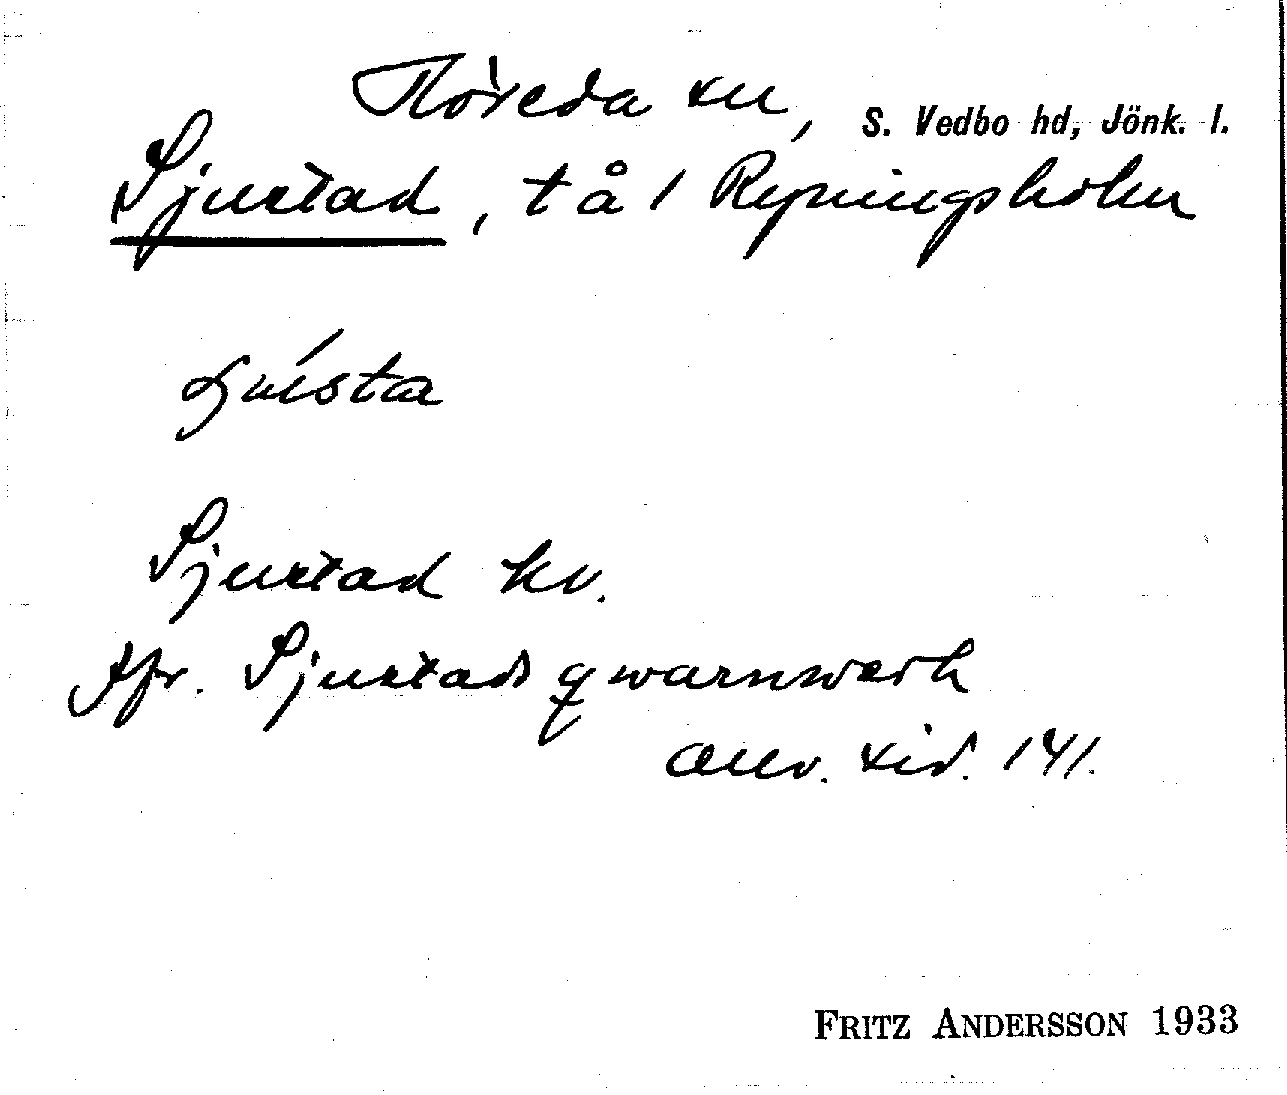 Flöreda sn, S. Vedbo hd, Jönk. l.
Sjustad, t å 1 Ryningsholm
Sjustad kv.
Jfr. Sjustads qwarnwerk
anv. sid. 141.
FRITZ ANDERSSON 1933